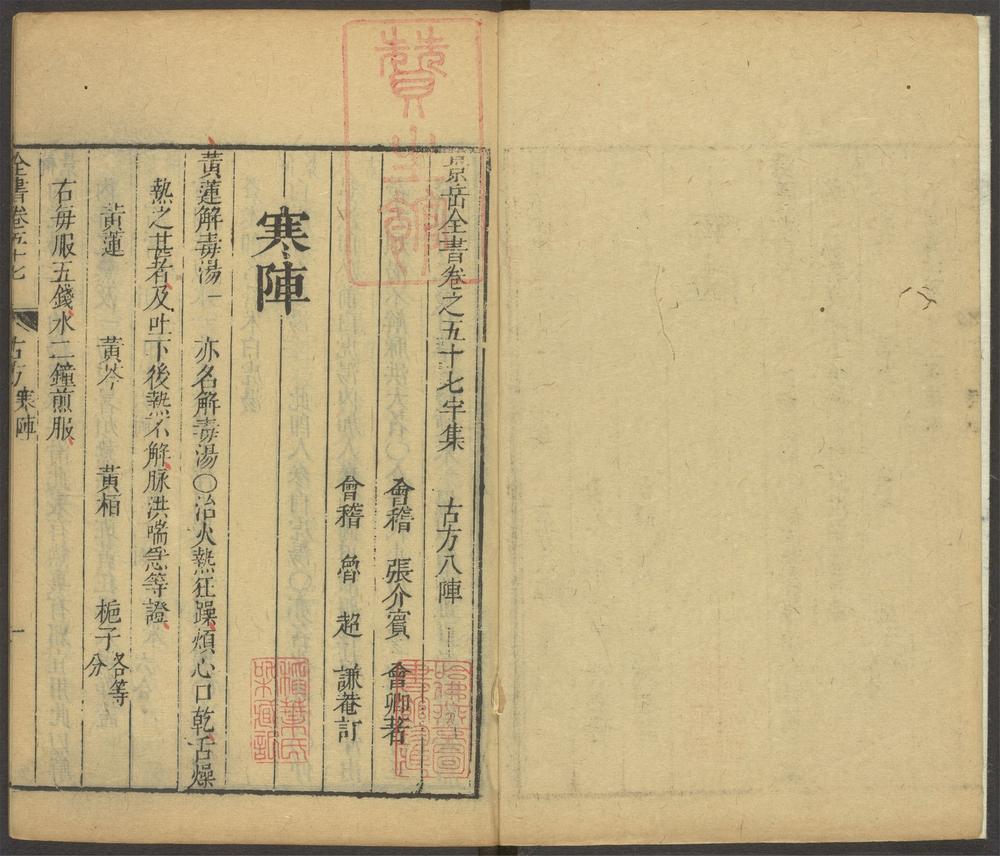 景岳全書卷之五十七宇集 古方八陣
會稽 張介賓 會卿著
會稽 魯 超 謙菴訂
寒陣
黃蓮解毒湯一 亦名解毒湯〇治火熱狂躁煩心口乾舌燥
熱之甚者及吐下後熱不解脉洪喘急等證
黃蓮 黃芩 黃栢 梔子各等分
右每服五錢水二鐘煎服
全書卷五十七 古方寒陣 一